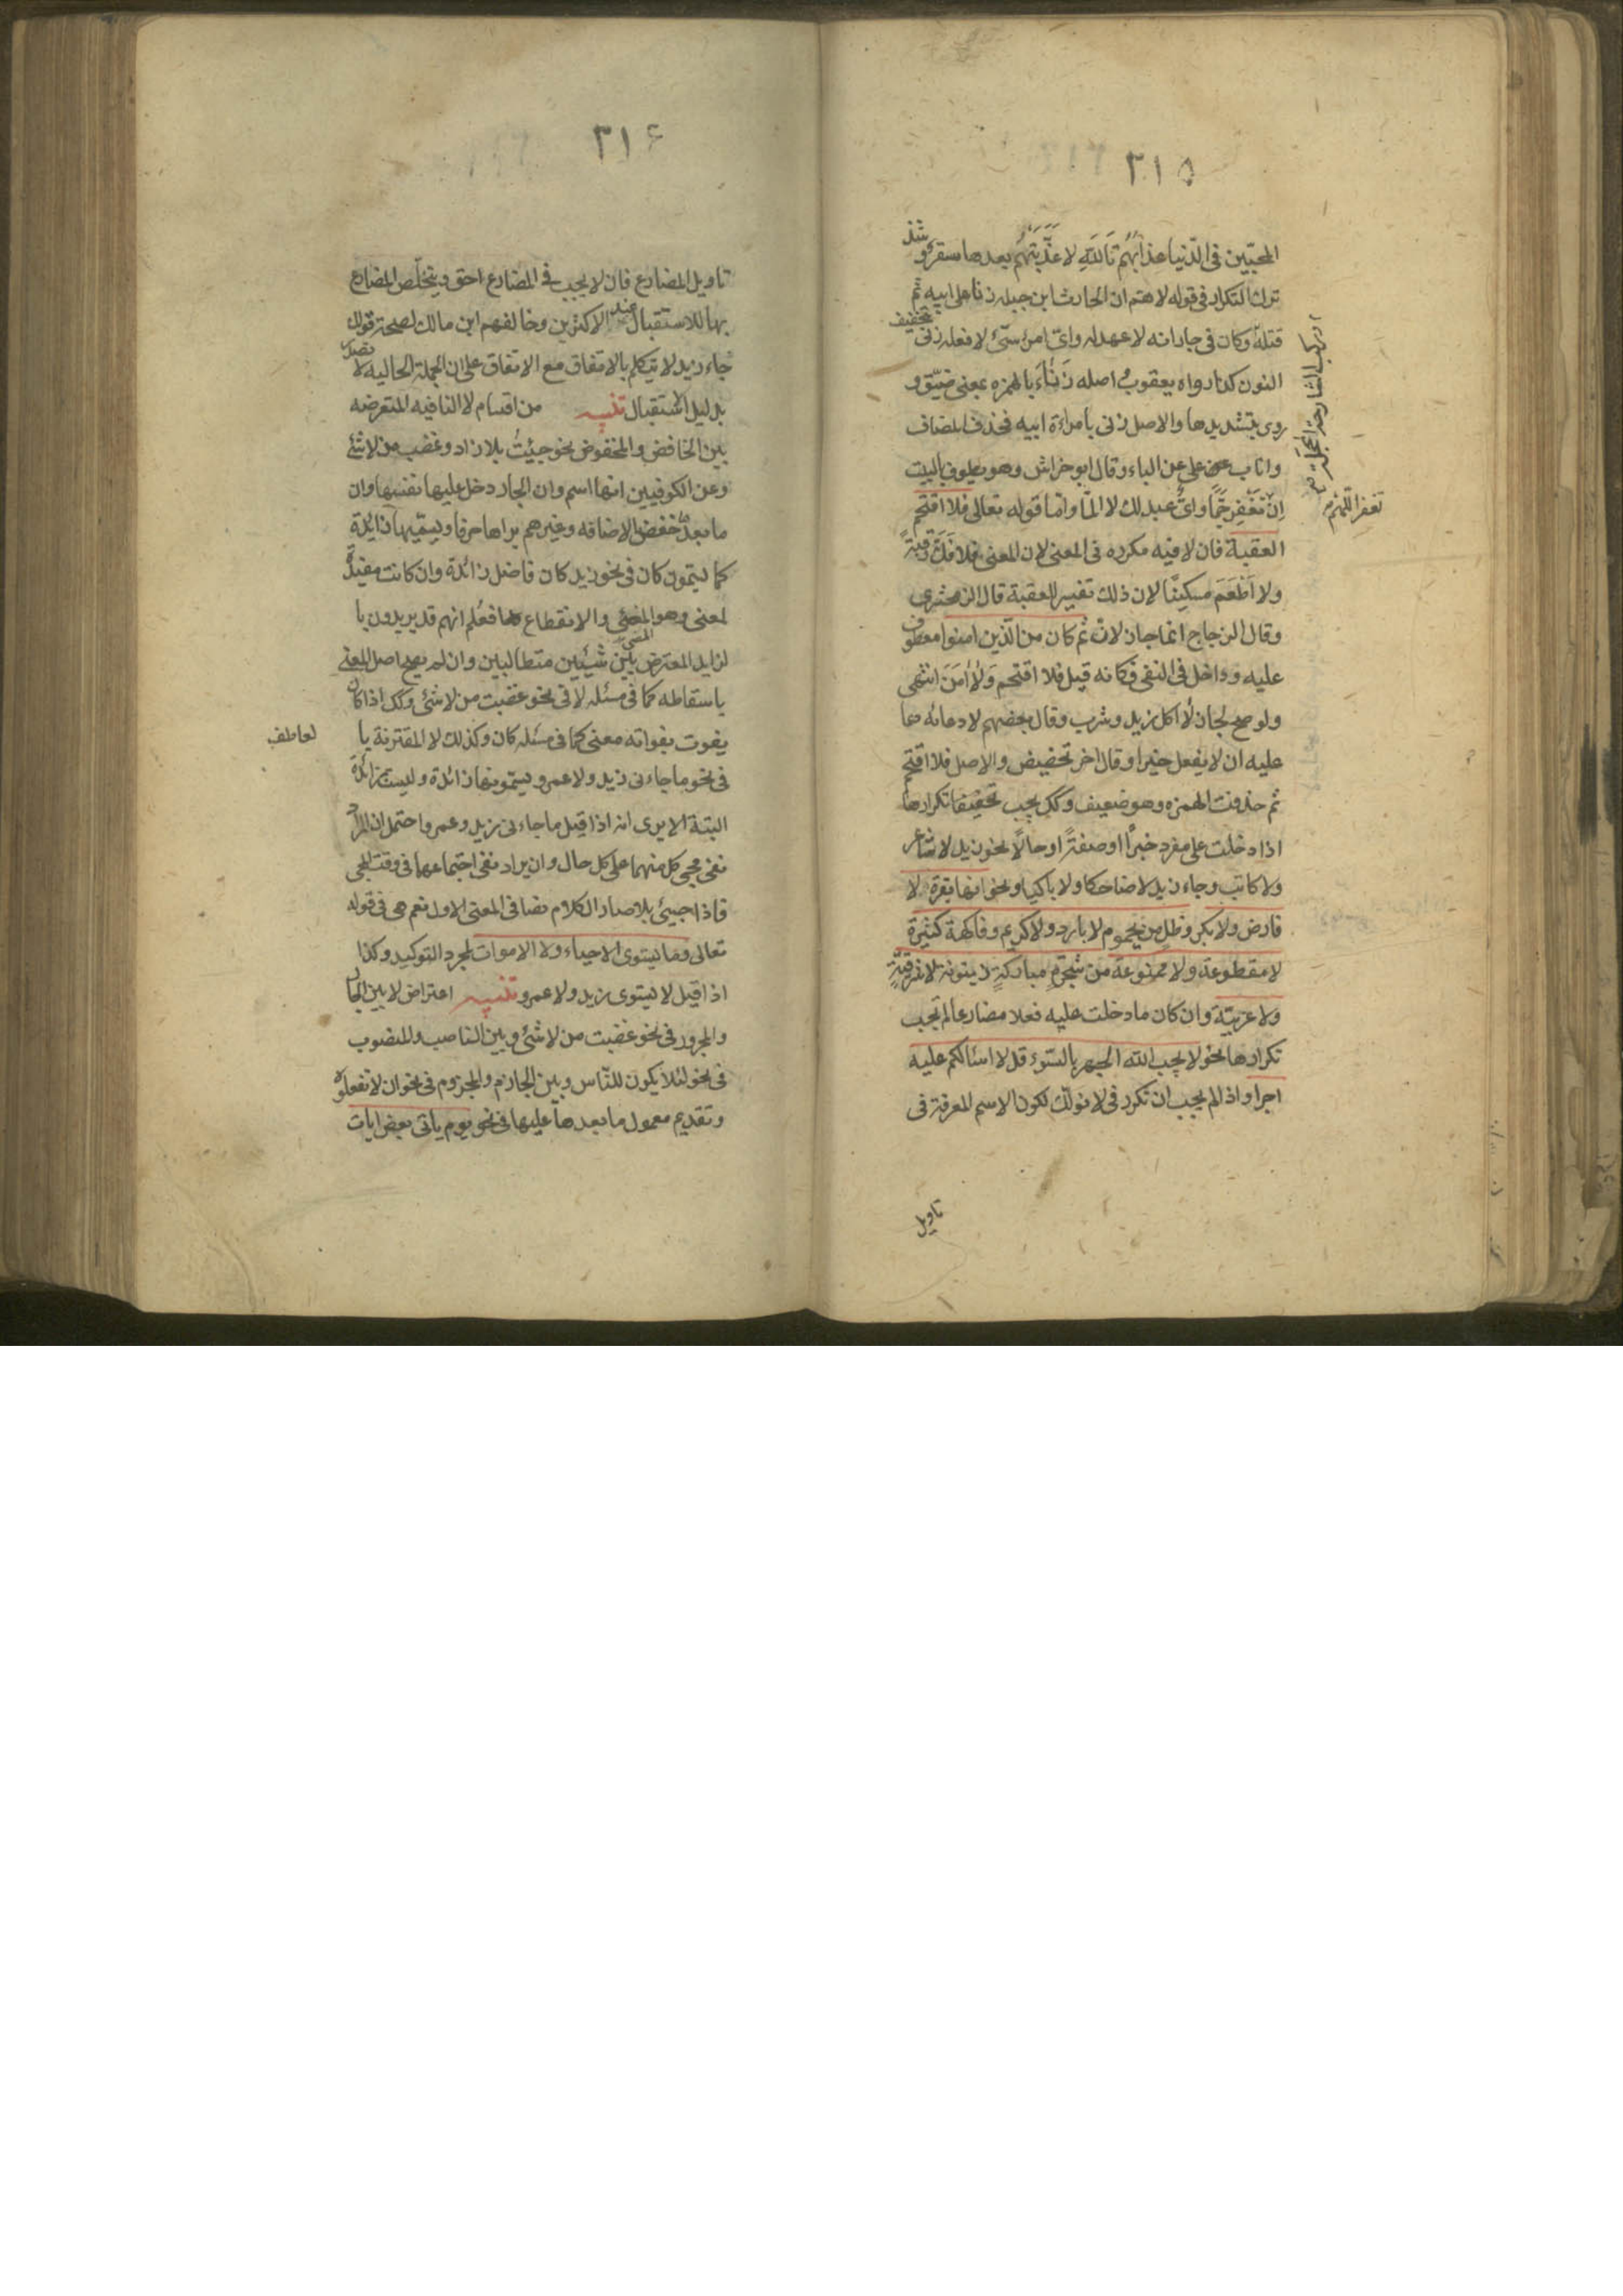 ٣١٥
المحبّين فى الدّنيا عذابُهُم تَاللّهِ لا عَذَّبَتْهُم بعدها سقر وشذ
ترك التكرار فى قوله لاهم ان الحارث ابن جبله زنا على ابيه ثم
قتله وكان فى جاراته لا عهد له واىّ امرٍ سىّئ لا فعله زنى بتخفيف
النون كذا رواه يعقوب واصله زَنَأَ بالهمزه بمعنى ضيّق و
روى بتشديدها والاصل زنى بامراءة ابيه فحذف المضاف
واناب على عن الباء وقال ابو خراش وهو يطوف بالبيت
اِنْ تَغْفِر جَمًّا واىُّ عبد لك لا المّا وامّا قوله تعالى فلا اقتحم
العقبة فان لا فيه مكرره فى المعنى لان المعنى فلا فَكَّ رقبةً
ولا اَطْعَمَ مسكينًا لان ذلك تفسير للعقبة قال الزمخشرى
وقال الزجاج انما جاز لانّ ثم كان من الّذين امنوا معطوف
عليه وداخل فى النفى فكانه قيل فلا اقتحم وَلا اٰمَنَ انتهى
ولو صح لجاز لا اكل زيد وشرب وقال بعضهم لا دعائه دعا
عليه ان لا يفعل خيرا وقال اخر تحضيض والاصل فلا اقتحم
ثم حذفت الهمزه وهو ضعيف وكك يجب تكرارها
اذا دخلت على مفرد خبرًا او صفةً او حالًا نحو زيد لا شاعر
ولا كاتب وجاء زيد لا ضاحكا ولا باكيا ونحو انها بقرة لا
فارض ولا بكر وظل من يحموم لا بارد ولا كريم وفاكهة كثيرة
لا مقطوعة ولا ممنوعة من شجرةٍ مباركةٍ زيتونة لا شرقيّةٍ
ولا غربيّة وان كان ما دخلت عليه فعلا مضارعا لم تجب
تكرارها نحو لا يحب الله الجهر بالسّوء قل لا اسالكم عليه
اجرا واذا لم يجب ان تكرر فى لا نولك لكون الاسم المعرفة فى
تاويل
تغفر اللّهم
٣١۶
تاويل المضارع فان لا يجب فى المضارع احق ويتخلّص المضارع
بها للاستقبال عند الاكثرين وخالفهم ابن مالك لصحة قولك
جاء زيد لا يتكلم بالاتفاق مع الاتفاق على ان الجملة الحاليه لا تصدر
بدليل الاستقبال تنبيه من اقسام لا النافيه المتعرضه
بين الخافض والمخفوض نحو جيئتُ بلا زاد وغضب من لا شئ
وعن الكوفيين انها اسم وان الجار دخل عليها نفسها وان
ما بعدها خفض الاضافه وغيرهم يراها حرفا ويسمّيها زائدة
كما يسمّون كان فى نحو زيد كان فاضل زائدة وان كانت مفيدةً
لمعنى وهو المضى والانقطاع فعُلم انهم قد يريدون با
لزايد المعترض بين شيئين متطالبين وان لم يصح اصل المعنى
باسقاطه كما فى مسئله لا فى نحو غضبت من لا شئ وكك اذا كان
يفوت بفواته معنى كما فى مسئله كان وكذلك لا المقترنة با
لعاطف
فى نحو ما جاءنى زيد ولا عمرو ويسمّونها زائدة وليست زائدة
البتة الا يرى انه اذا قيل ما جاءنى زيد وعمرو احتمل ان المراد
نفى مجئ كل منهما على كل حال وان يراد نفى اجتماعهما فى وقت المجى
فاذا جيئ بلا صار الكلام نصا فى المعنى الاول نعم هى فى قوله
تعالى وما يستوى الاحياء ولا الاموات لمجرد التوكيد وكذا
اذا قيل لا يستوى زيد ولا عمرو تنبيه اعتراض لا بين الجار
والمجرور فى نحو غضبت من لا شئ وبين الناصب والمنصوب
فى نحو لئلّا يكون للنّاس وبين الجازم والمجزوم فى نحو ان لا تفعلوه
وتقديم معمول ما بعدها عليها فى نحو يوم ياتى بعض ايات